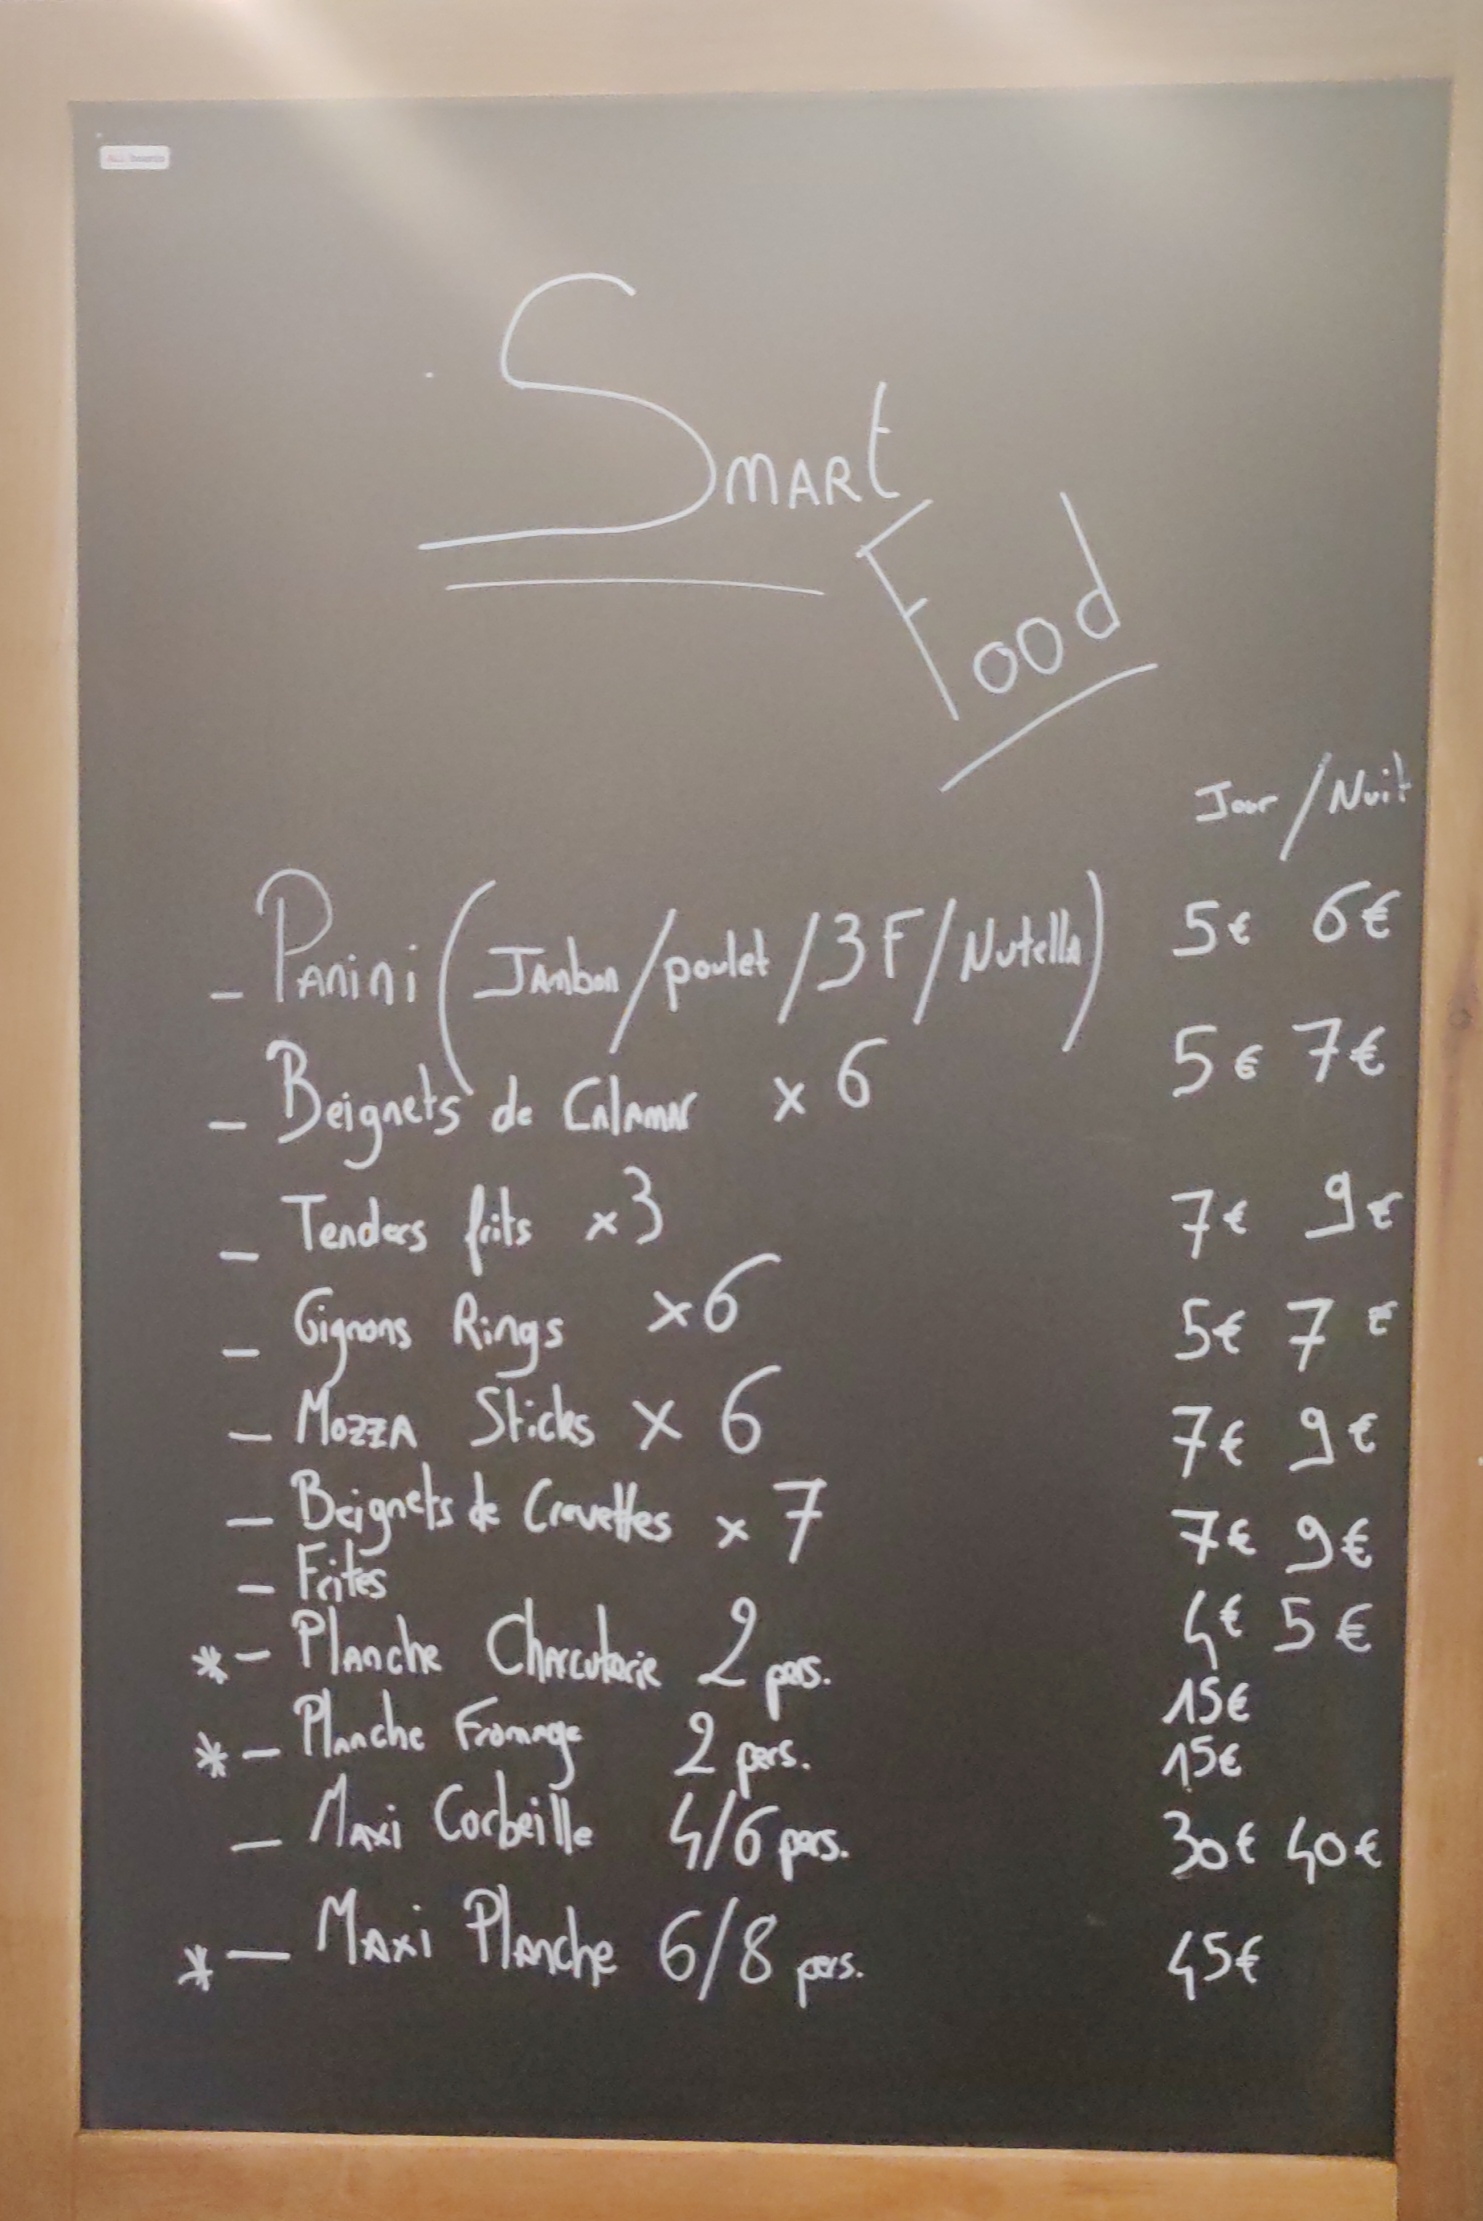 ALL boards
Smart
Food
Jour / Nuit
- Panini (Jambon / poulet / 3 F / Nutella) 5€ 6€
- Beignets de Calamar x 6 5€ 7€
- Tenders frits x3 7€ 9€
- Oignons Rings x6 5€ 7€
- Mozza Sticks x 6 7€ 9€
- Beignets de Crevettes x 7 7€ 9€
- Frites 4€ 5€
* - Planche Charcuterie 2 pers. 15€
* - Planche Fromage 2 pers. 15€
- Maxi Corbeille 4/6 pers. 30€ 40€
* - Maxi Planche 6/8 pers. 45€